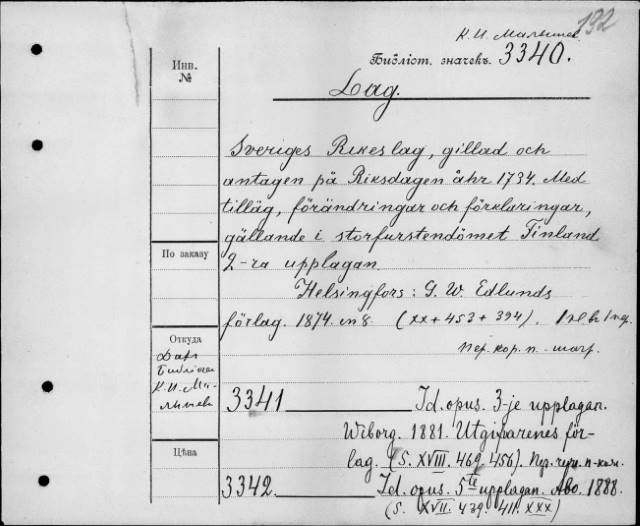 132
К. И. Малышев
Библіот. значекъ. 3340.
Инв.
№
Lag.
Sveriges Rikes lag, gillad och
antagen på Riksdagen åhr 1734. Med
tilläg, förändringar och förklaringar,
gällande i storfurstendömet Finland
2-ra upplagan
Helsingfors: G. W. Edlunds
förlag. 1874. in 8. (XX + 453 + 394).
Пер. кор. п.
По заказу
Откуда
Даръ
Библіотеки
К. И. Ма-
лышева
Цѣна
3341 Id. opus. 3-je upplagan.
Wiborg. 1881. Utgifvarenes för-
lag. (S. XVIII. 469. 456). Пер.
3342. Id. opus. 5te upplagan. Åbo. 1888.
(S. XVII. 439. 411. XXX)